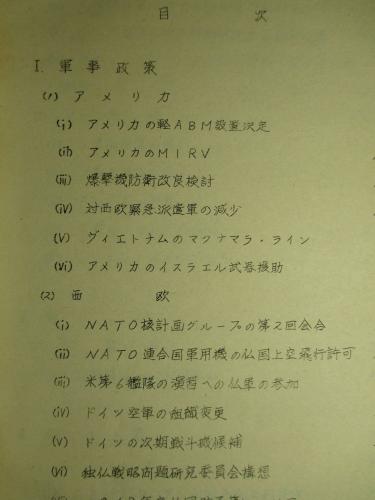 目 次
I. 軍事政策
(1) アメリカ
(i) アメリカの軽ABM設置決定
(ii) アメリカのMIRV
(iii) 爆撃機防衛改良検討
(iV) 対西欧緊急派遣軍の減少
(V) ヴィエトナムのマクナマラ・ライン
(Vi) アメリカのイスラエル武器援助
(2) 西 欧
(i) NATO核計画グループの第2回会合
(ii) NATO連合国軍用機の仏国上空飛行許可
(iii) 米第6艦隊の演習への仏軍の参加
(iV) ドイツ空軍の組織変更
(V) ドイツの次期戦斗機候補
(Vi) 独仏戦略問題研究委員会構想